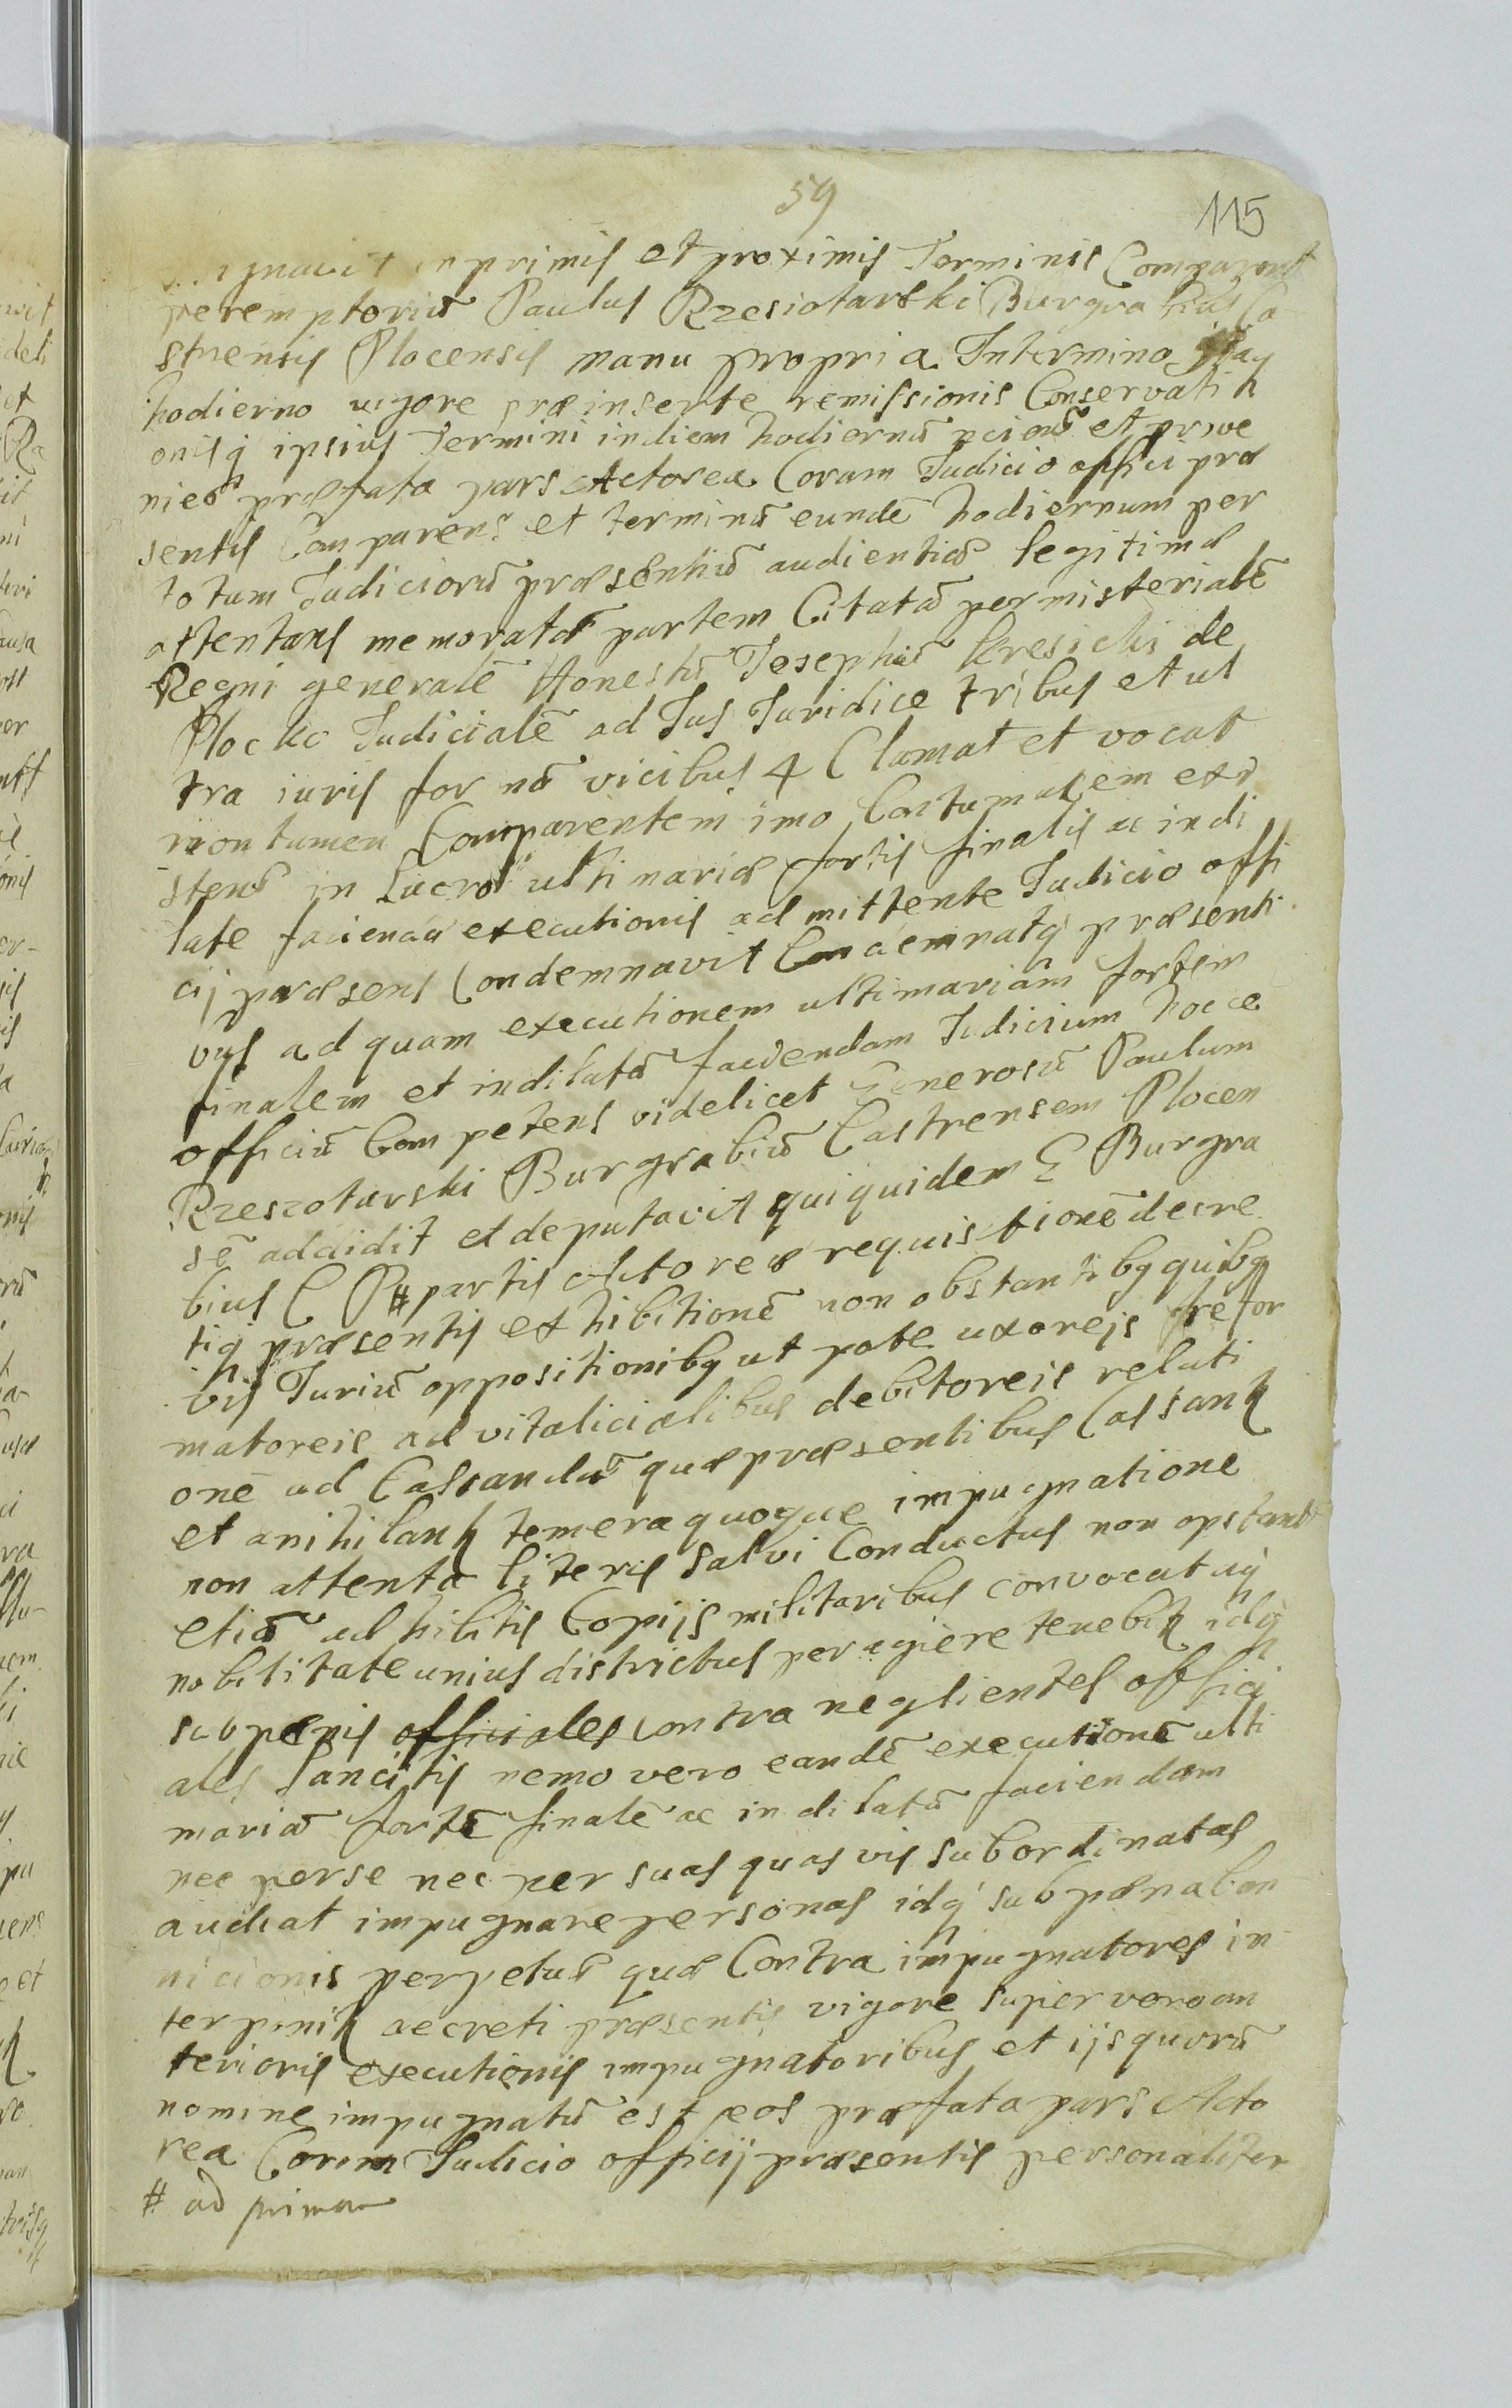 59
115
in primis et proximis Terminis Comparent
peremptoriũ Paulus Rzesiotarski Burgrabius Ca
strensis Plocensis manu propria In termino itaq
hodierno vigore præinserte remissionis Conservati
onisq ipsius Termini in diem hodiernũ et prove
præfata pars Actorea Coram Judicio offici præ
sentis Comparens et terminũ eundẽ hodiernum per
totum Judiciorũ præsentiũ audientiã legitimæ
attentans memoratã partem Citatã per misterialẽ
Regni generalẽ Honestũ Josephũ Kresicki de
Plocko Judicialẽ ad Jus Juridice tribus et ul
tra iuris for nã vicibus 4 Clamat et vocat
non tamen Comparentem imo Contumacem exi
stens in Lucro ultimariæ fortis finalis ac indi
late faciendã executionis admittente Judicio offi
cij præsens Condemnavit Condemnatq præsenti
vus ad quam executionem ultimariam fortem
finalem et indilatã faciendam Judicium hocce
officiũ Competens videlicet Generosũ Paulum
Rzeszotarski Burgrabiũ Castrensem Plocen
sẽ addidit et deputavit qui quidem G Burgra
bius C P # partis Actoreæ requisitionẽ decre
tiq præsentis exhibitionẽ non obstantibq quibq
vis Juriũ oppositionibq ut pote uxoreis refor
matoreis advitalicialibus debitoreis relati
onẽ ad Cassandũ quæ præsentibus Cassank
et anihilank temera quoque impugnatione
non attenta literis salvi Conductus non opstant
etiã adhibitis Copijs militaribus convocataq
nobilitate unius districtus peragiere tenebik idq
sub pænis officiales contra neglientes offici
ales Sancitis nemo vero eandẽ executionẽ ulti
mariã fortẽ finalẽ ac in dilatã faciendam
nec per se nec per suas quas vis subordinatas
audeat impugnare personas idq sub pæna ban
nicionis perpetuæ quæ Contra impugnatores in
terponik decreti præsentis vigore super vero an
terioris executionis impugnatoribus et ijs quorũ
nomine impugnatũ est eos præfata pars Acto
rea Coram Judicio officij præsentis personaliter
# ad primam